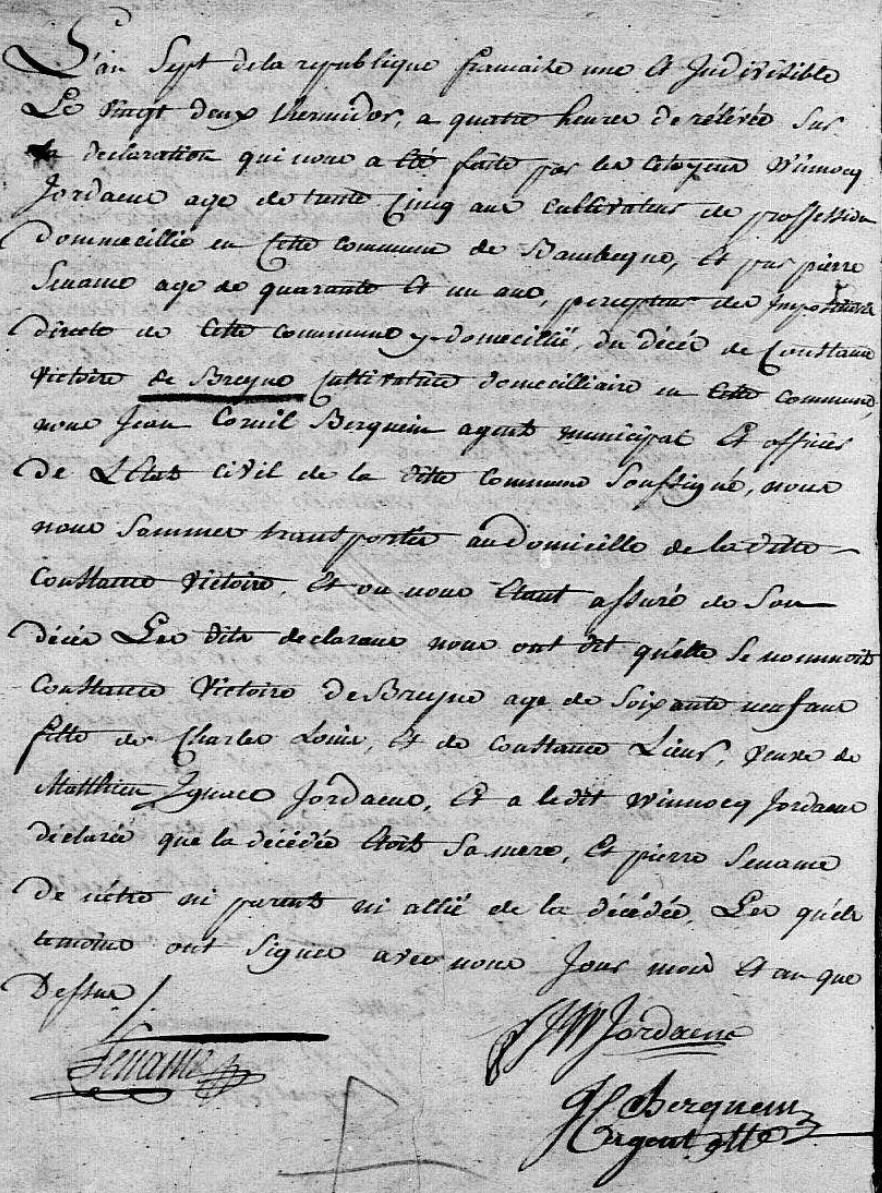 L'an Sept de la republique francaise une et Indivisible
Le vingt deux thermidor, a quatre heures de rélévée sur
la declaration qui nous a été faite par les Citoyens Winnocq
Jordaens age de trente Cinq ans cultivateur de proffession
dommecillié en Cette commune de Bambeque, et par pierre
Sename age de quarante et un ans, percepteur des
directe de Cette commune y domecillié, du décés de Constance
Victoire de Breyne Cultivatrice domecilliaire en Cette commune
nous Jean Cornil Berquein agent municipal et officier
de L'Etat civil de la ditte commune Soussigné, nous
nous sommes transportés au Domicille de la ditte
Constance Victoire, et ou nous étant assuré de Son
décés Les dits declarans nous ont dit qu'elle Se nommoit
Constance Victoire de Breyne age de soixante neuf ans
fille de Charles Louis, et de Constance Lieur, veuve de
Matthieu Ignace Jordaens, et a ledit Winnocq Jordaens
déclaré que la décédée étoit Sa mere, et pierre Sename
de n'être ni parent ni allié de la décédée, Les quels
temoins ont signés avec nous Jour mois et an que
Dessus
JW Jordaens
Sename
JC Berquein
agent